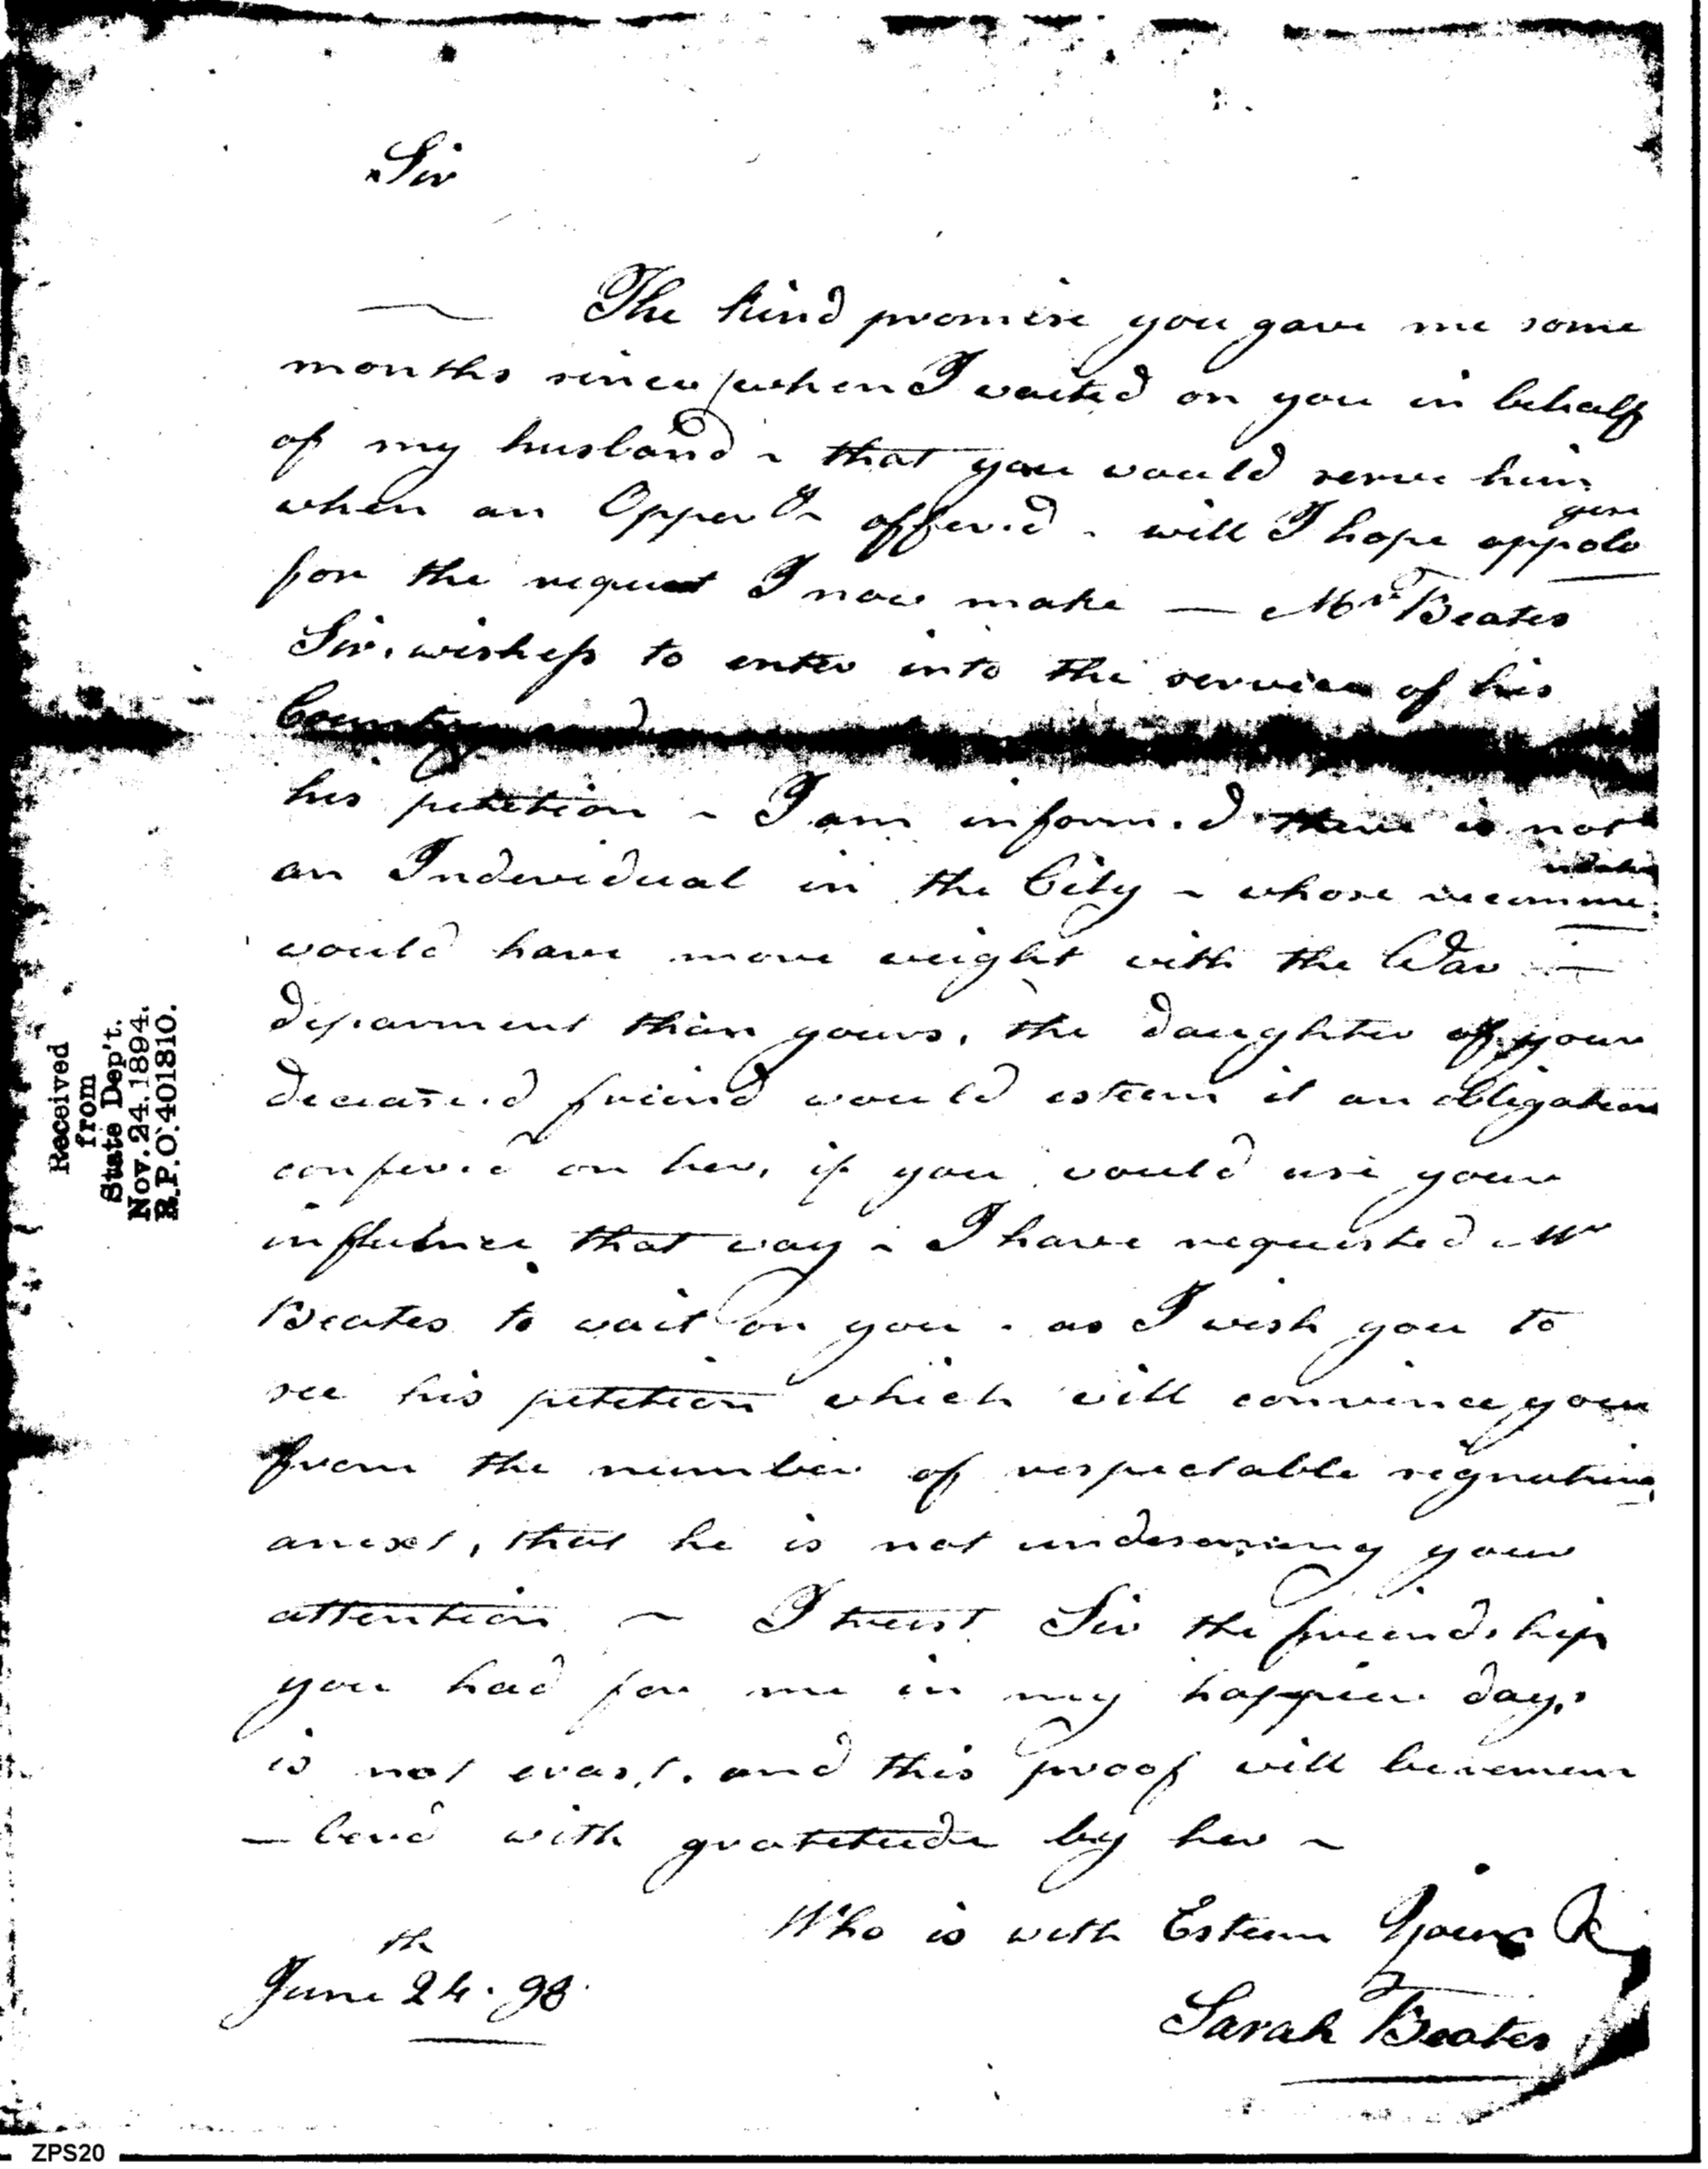 Sir
The kind promise you gave me some
months since when I waited on you in behalf
of my husband - that you would serve him
when an Opper offered - will I hope appolo
gise
for the request I now make — Mr Beates
Sir, wishefs to enter into the service of his
Country and
his petetion - I am inform.d there is not
an Indevidual in the City - whose recomme
ndation
would have more weight with the War —
deparment than yours, the daughter of your
deceased friend would esteem it an obligation
confered on her, if you would use your
influence that way - I have requested Mr
Beates to wait on you - as I wish you to
see his petetion which will convince you
from the number of respectable signatures
anext, that he is not undeserving your
attention - I trust Sir the friendship
you had for me in my happier days
is not erast, and this proof will beremem
— berd with gratetude by her -
Who is with Esteem Yours &
June 24th 98
Sarah Beates
Received
from
State Dep't.
Nov. 24. 1894.
R.P.O. 401810.
ZPS20